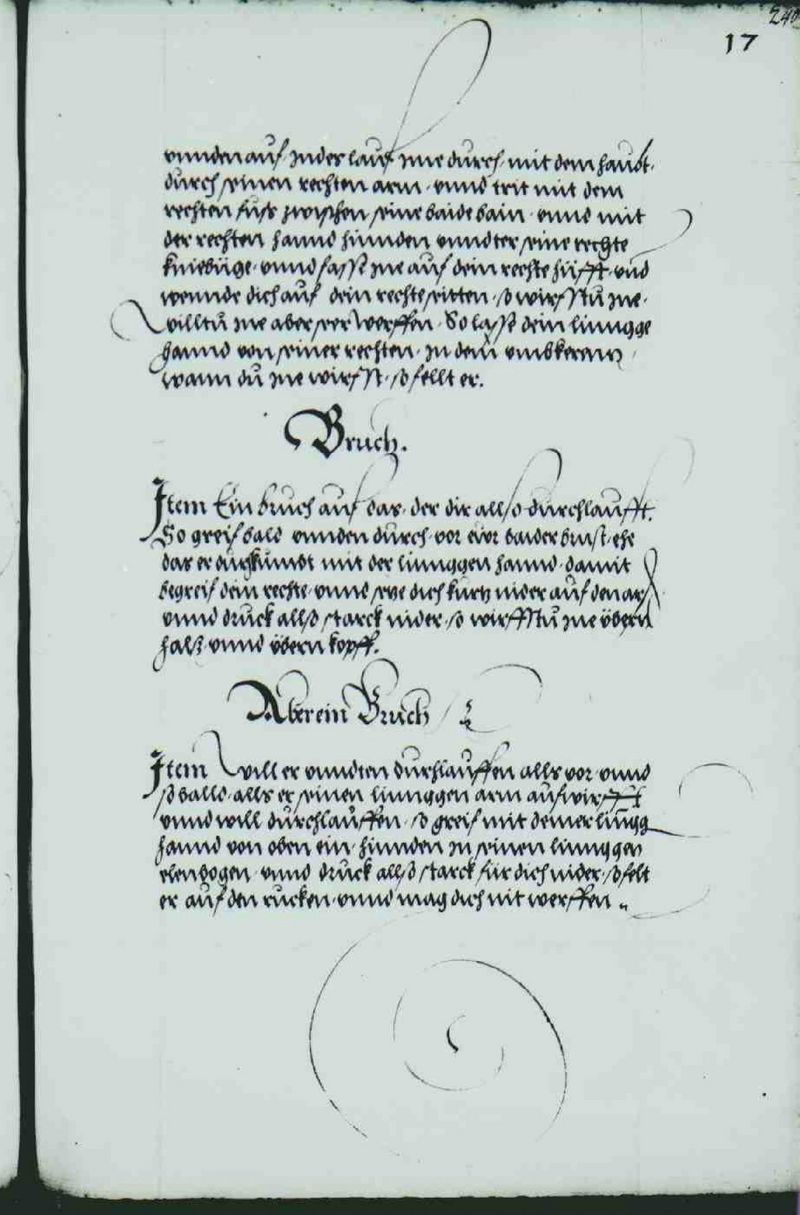 240
17
vnnden auf · Inndes lauf Ime durch · mit dem haubt ·
durch seinen rechten arm · vnnd trit mit dem
rechten fuss zwischen seine baide bain · vnnd mit
der rechten hannd hinnden vnndter seine rechte
kniebüge · vnnd fasse Ine auf dein rechte hüfft · vnd
wennde dich auf dein rechte seitten · so wirfstu Ine ·
willtu Ine aber werffen · So lasse dein linngge
hannd von seiner rechten · In dem vmbkeren
wann du Ine wirfst · so fellt er.
Bruch.
Item Ein bruch auf das · der dir allso durchlaufft.
So greif bald vnnden durch · vor eur baider brust · ehe
das er durchkumbt mit der linnggen hannd · damit
begreif dein rechte · vnnd setze dich kurtz nider auf den ars
vnnd druck allso starck nider · so wirfstu Ine übern
hals · vnnd übern kopff.
Aber ein Bruch
Item will er vnndten durchlauffen alls vor · vnnd
so balld · alls er seinen linnggen arm aufwirfft
vnnd will durchlauffen · so greif mit deiner lingg
hannd von oben ein · hinnden In seinen linnggen
elenbogen · vnnd druck allso starck für dich nider · so felt
er auf den rucken · vnnd mag dich nit werffen